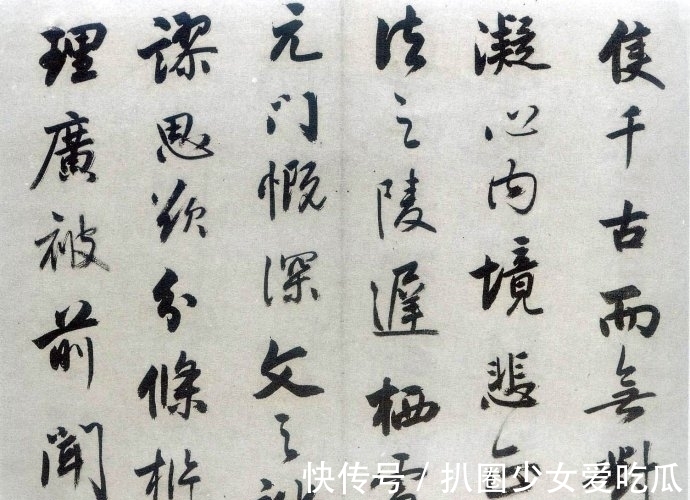 隻千古而無
凝心内境悲
法之陵遲栖
元門慨深文之
謬思欲分條析
理廣被前聞
快传号 / 扒圈少女爱吃瓜